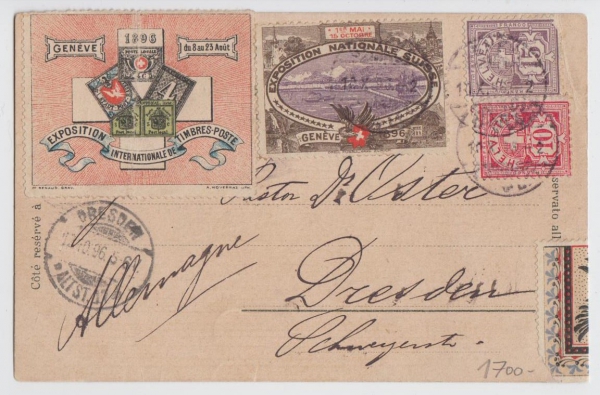 GENÈVE
1896
du 8 au 23 Août
EXPOSITION
INTERNATIONALE DE
TIMBRES-POSTE
1er MAI
15 OCTOBRE
EXPOSITION NATIONALE SUISSE
GENÈVE 1896
FRANCO
15
HELVETIA
10
HELVETIA
Pastor Dr Oster
Côté resérvé à
DRESDEN
ALTST.
Allemagne
Dresden
servato all
1700-